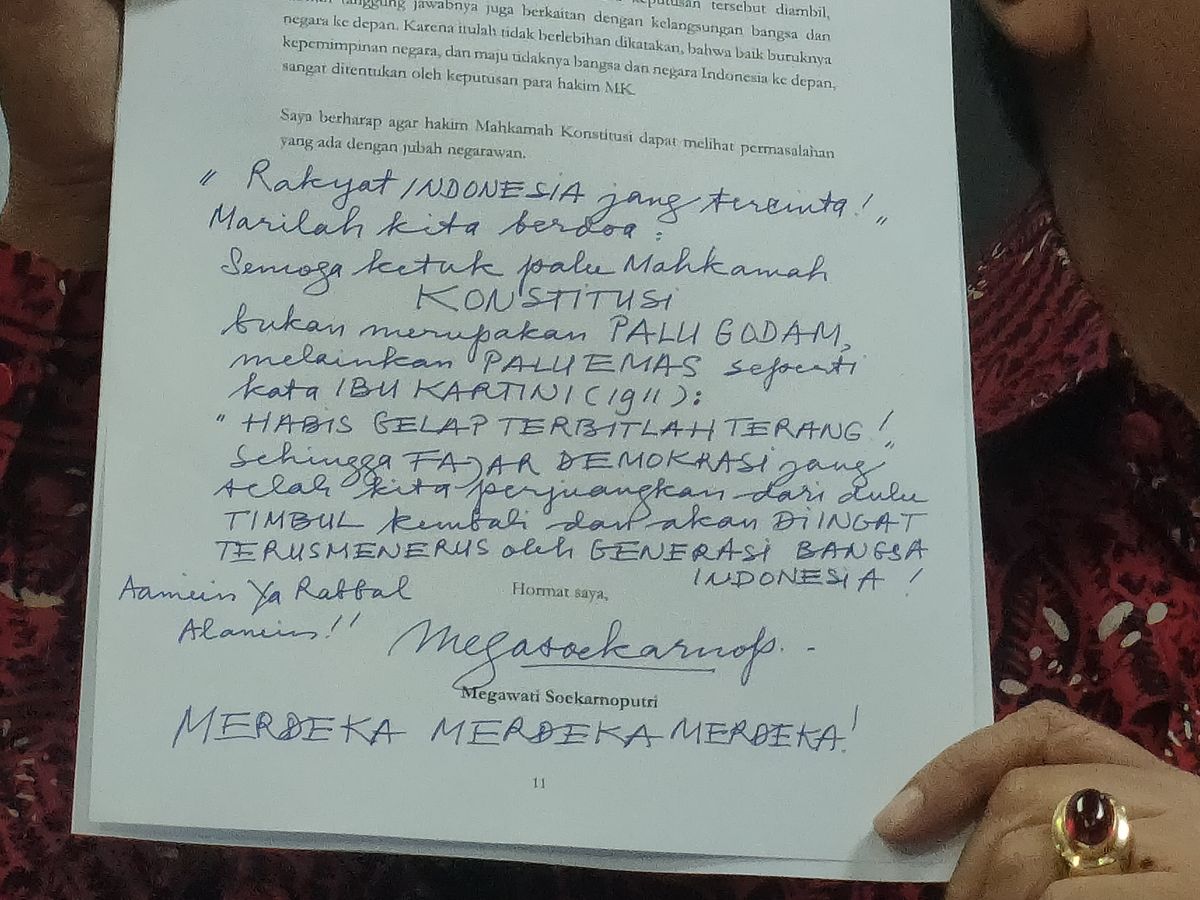 keputusan tersebut diambil,
tanggung jawabnya juga berkaitan dengan kelangsungan bangsa dan
negara ke depan. Karena itulah tidak berlebihan dikatakan, bahwa baik buruknya
kepemimpinan negara, dan maju tidaknya bangsa dan negara Indonesia ke depan,
sangat ditentukan oleh keputusan para hakim MK.
Saya berharap agar hakim Mahkamah Konstitusi dapat melihat permasalahan
yang ada dengan jubah negarawan.
" Rakyat INDONESIA jang tercinta! "
Marilah kita berdoa :
Semoga ketuk palu Mahkamah
KONSTITUSI
bukan merupakan PALU GODAM,
melainkan PALU EMAS seperti
kata IBU KARTINI (1911):
" HABIS GELAP TERBITLAH TERANG! "
Sehingga FAJAR DEMOKRASI jang
telah kita perjuangkan dari dulu
TIMBUL kembali dan akan DIINGAT
TERUSMENERUS oleh GENERASI BANGSA
INDONESIA !
Hormat saya,
Aamiin Ya Rabbal
Alamin!!
Megasoekarnop.
Megawati Soekarnoputri
MERDEKA MERDEKA MERDEKA!
11